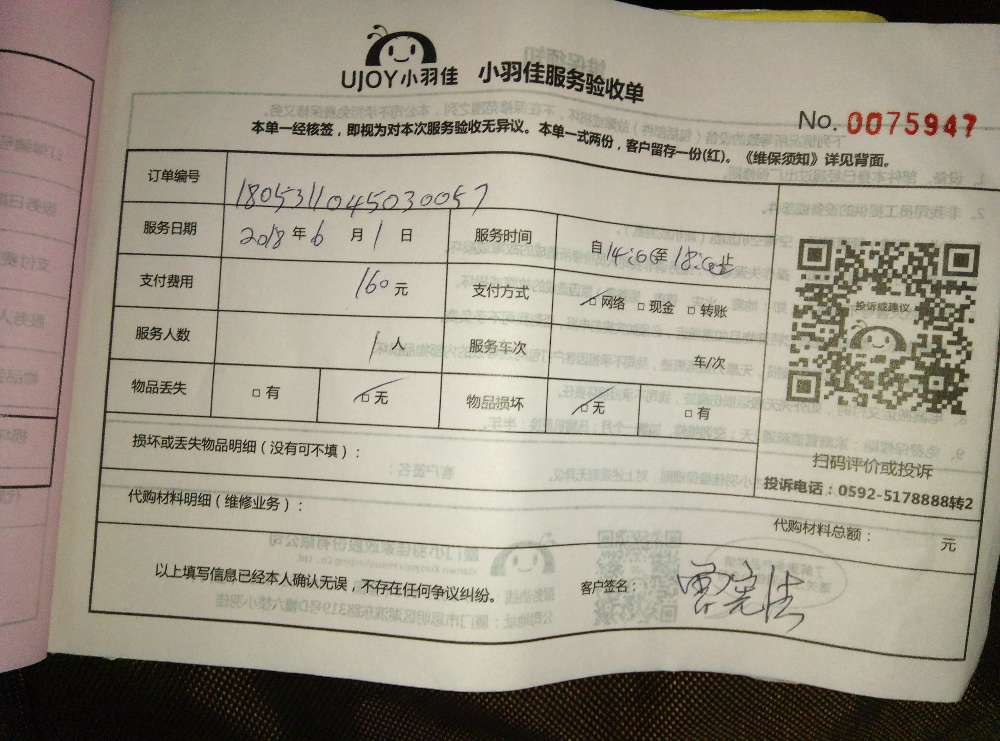 UJOY小羽佳 小羽佳服务验收单
No. 0075947
本单一经核签，即视为对本次服务验收无异议。本单一式两份，客户留存一份(红)。《维保须知》详见背面。
订单编号 1805311045030057
服务日期 2018年6月1日 服务时间 自14:00至18:00止
支付费用 160元 支付方式 □网络 □现金 □转账
服务人数 1人 服务车次 车/次
物品丢失 □有 □无 物品损坏 □无 □有
投诉或建议
扫码评价或投诉
投诉电话：0592-5178888转2
损坏或丢失物品明细（没有可不填）：
代购材料明细（维修业务）：
代购材料总额： 元
以上填写信息已经本人确认无误，不存在任何争议纠纷。
客户签名：